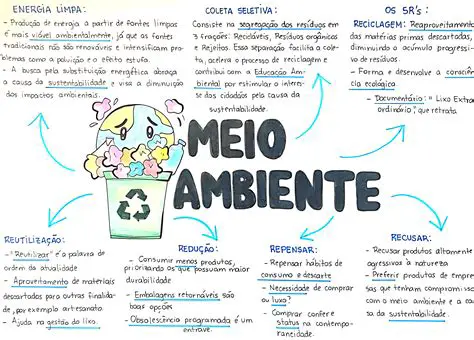 ENERGIA LIMPA:
- Produção de energia a partir de fontes limpas
é mais viável ambientalmente, já que as fontes
tradicionais não são renováveis e intensificam pro
blemas como a poluição e o efeito estufa.
- A busca pela substituição energética abraça
a causa da sustentabilidade e visa a diminuição
dos impactos ambientais.
COLETA SELETIVA:
Consiste na segregação dos resíduos em
3 frações: Recicláveis, Resíduos orgânicos
e Rejeitos. Essa separação facilita a cole-
ta, acelera o processo de reciclagem e
contribui com a Educação Am-
biental por estimular o interes-
se dos cidadãos pela causa da
sustentabilidade.
OS 5R's:
RECICLAGEM: Reaproveitamento
das matérias primas descartadas,
diminuindo o acúmulo progressi-
vo de resíduos.
- Forma e desenvolve a consciên
cia ecológica
- Documentário: "Lixo Extra
ordinário", que retrata.
MEIO
AMBIENTE
REUTILIZAÇÃO:
- "Reutilizar" é a palavra de
ordem da atualidade
- Aproveitamento de materiais
descartados para outras finalida-
de, por exemplo artesanato.
- Ajuda na gestão do lixo.
REDUÇÃO:
- Consumir menos produtos,
priorizando os que possuam maior
durabilidade
- Embalagens retornáveis são
boas opções
- Obsolescência programada é um
entrave.
REPENSAR:
- Repensar hábitos de
consumo e descarte
- Necessidade de comprar
ou luxo?
- Comprar confere
status na contempo-
raneidade.
RECUSAR:
- Recusar produtos altamente
agressivos à natureza
- Preferir produtos de empre
sas que tenham compromisso
com o meio ambiente e a cau
sa da sustentabilidade.